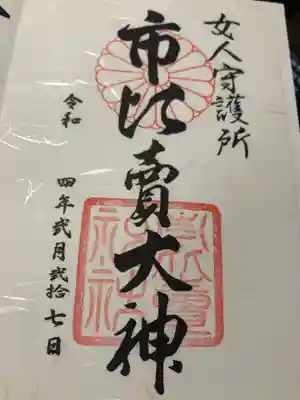 女人守護所
市比賣大神
令和
四年弐月弐拾七日